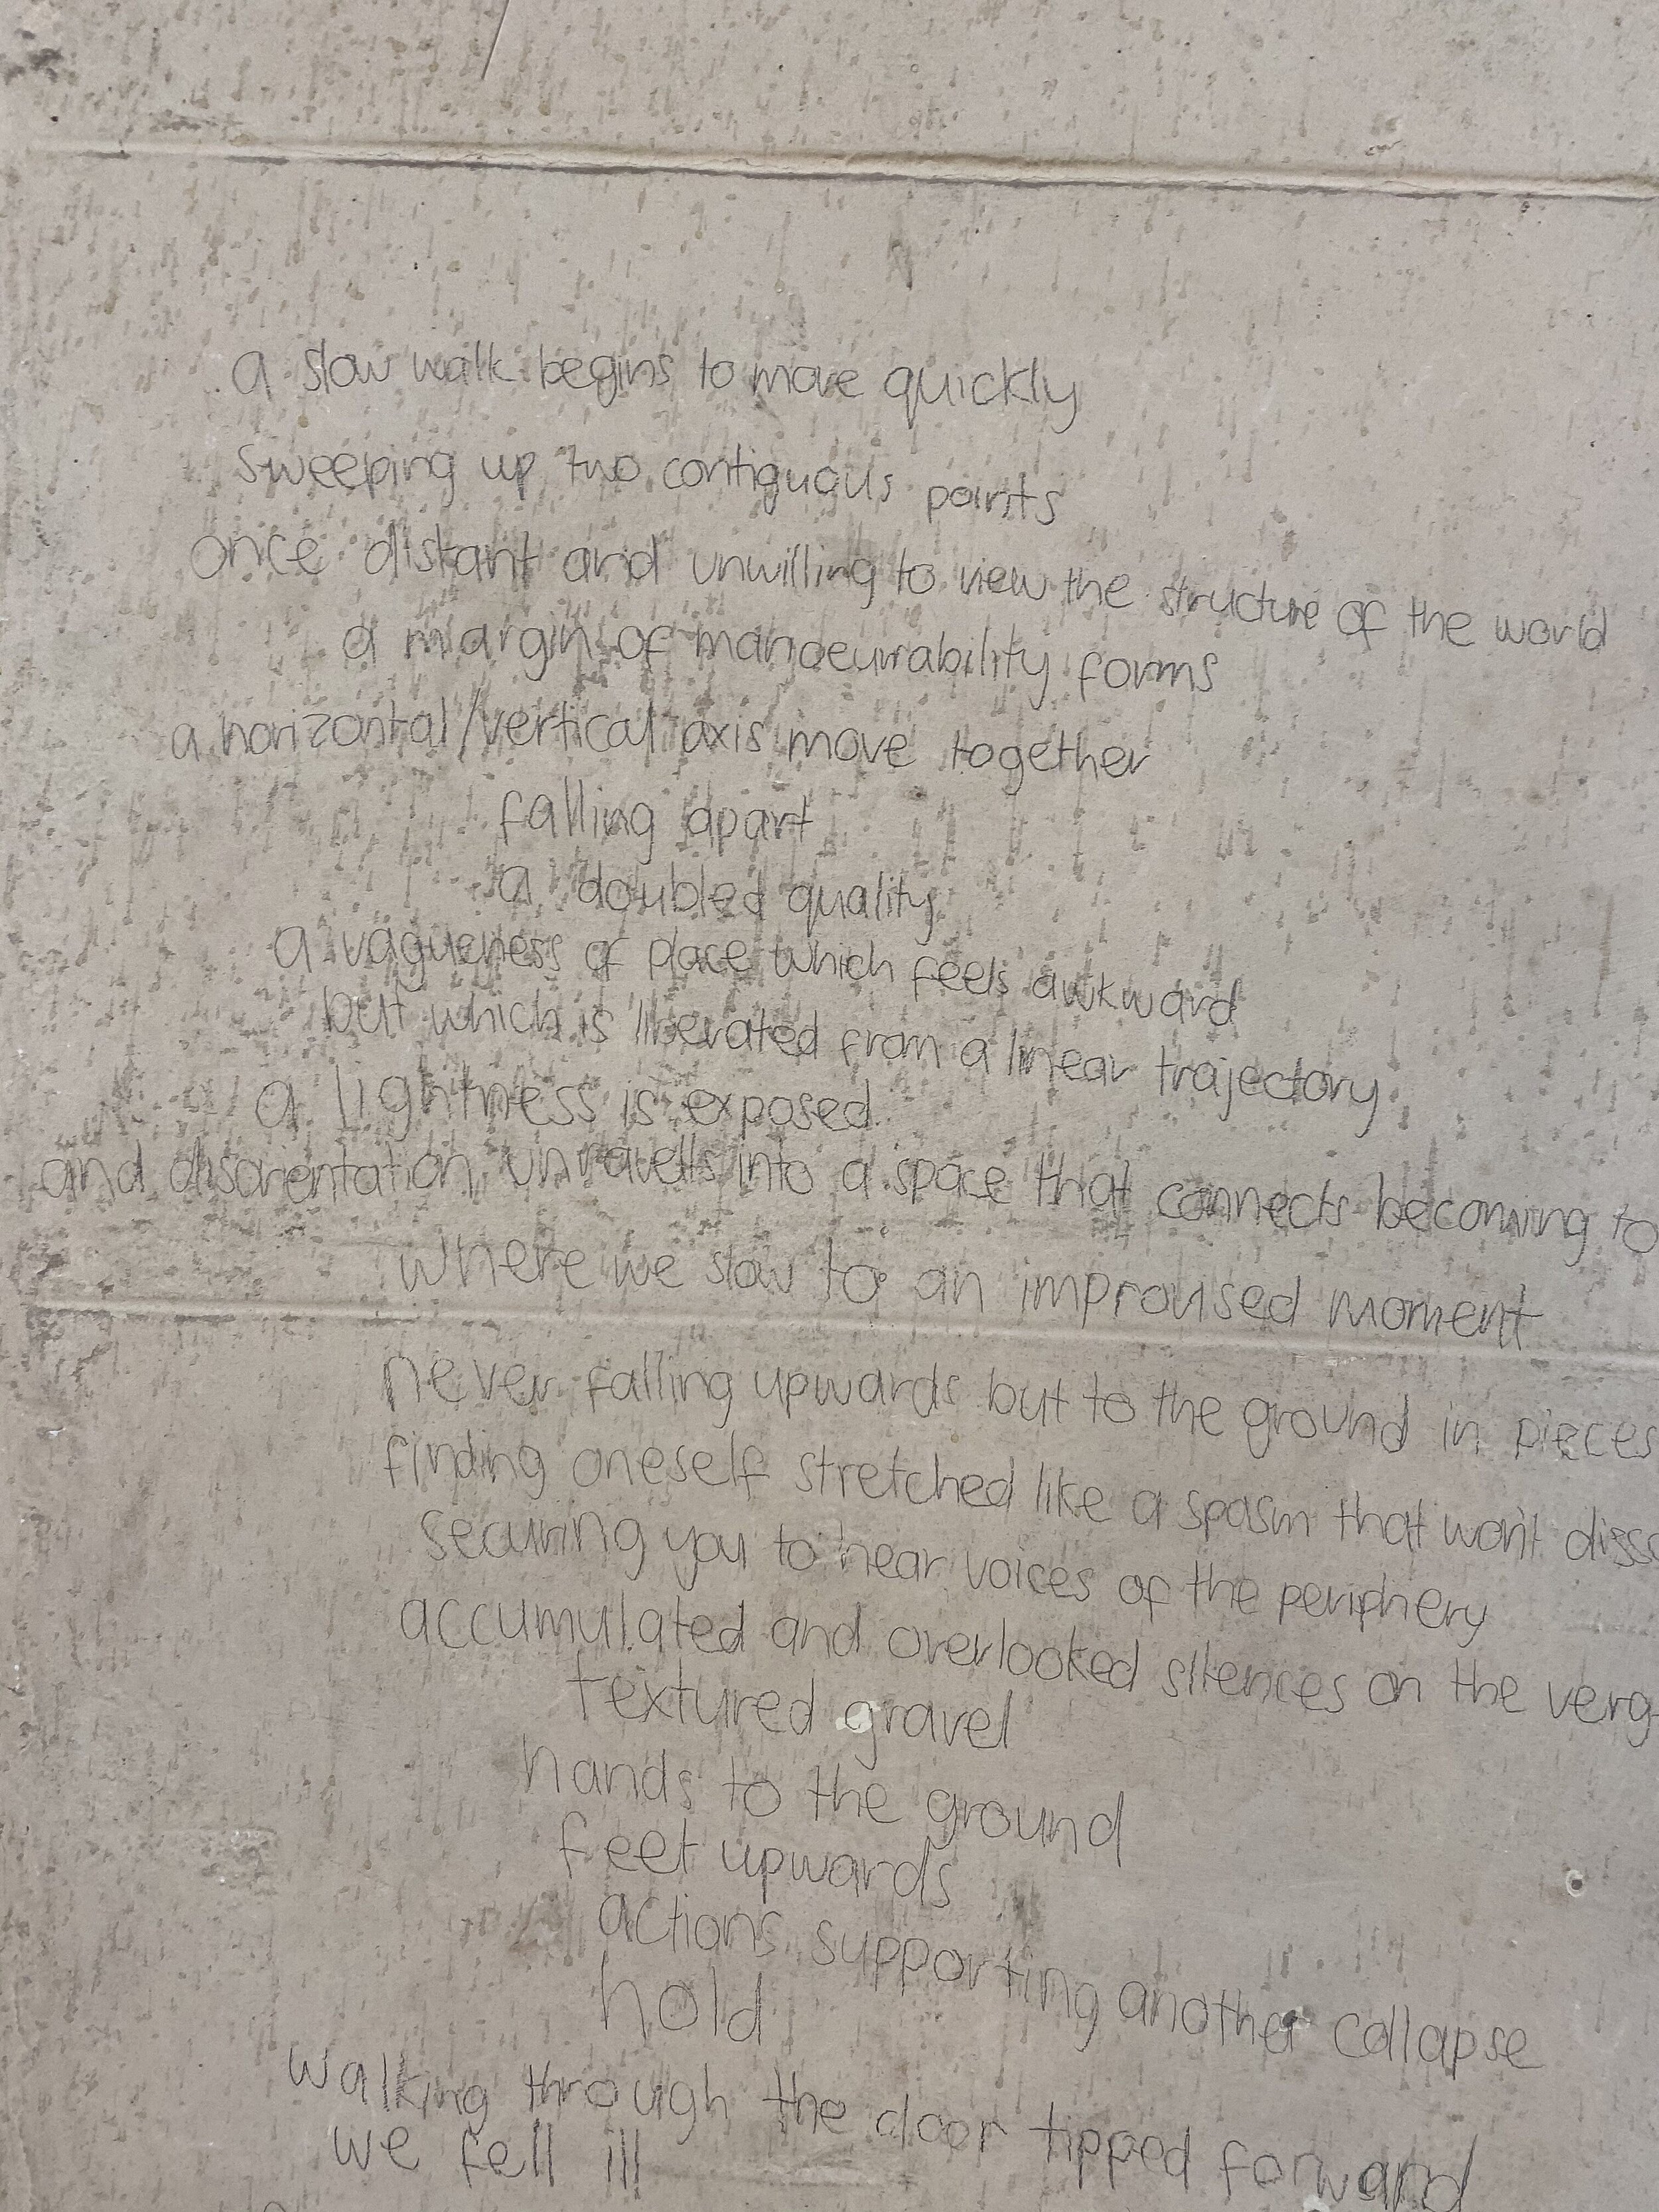 a slow walk begins to move quickly
sweeping up two contiguous points
once distant and unwilling to view the structure of the world
a margin of manoeuvrability forms
a horizontal/vertical axis move together
falling apart
a doubled quality
a vagueness of place which feels awkward
but which is liberated from a linear trajectory
a lightness is exposed
and disorientation unravells into a space that connects becoming to
where we slow to an improvised moment
never falling upwards but to the ground in pieces
finding oneself stretched like a spasm that won't
securing you to hear voices of the periphery
accumulated and overlooked silences on the
textured gravel
hands to the ground
feet upwards
actions supporting another collapse
hold
walking through the door tipped forward
we fell ill